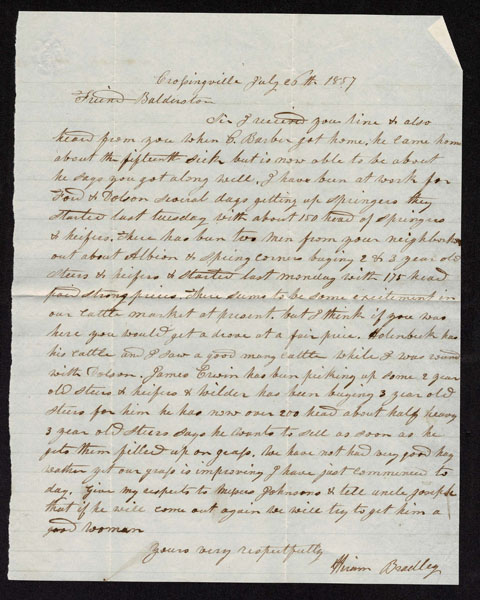 Crossingville July 26th 1857
Friend Balderston
Sir I received your line & also
heard from you when C. Barber got home, he came home
about the fifteenth sick but is now able to be about
he says you got along well, I have bun at work for
Ford & Dolson several days getting up springers they
started last tuesday with about 150 head of springers
& heifers, there has bun two men from your neighborhood
out about Albion & spring corners buying 2 & 3 year old
steers & heifers & started last monday with 175 head
paid strong prices. There seems to be some excitement in
our cattle market at present but I think if you was
here you would get a drove at a fair price.
has
his cattle and I saw a good many cattle while I was round
with Dolson. James Erwin has bun picking up some 2 year
old steers & heifers & Wilder has bun buying 3 year old
steers for him he has now over 200 head about half heavy
3 year old steers says he wants to sell as soon as he
gets them filled up on grass. We have not had very good hay
wether yet our grass is improving I have just commenced to
day. Give my respects to Messrs Johnsons & tell uncle Joseph
that if he will come out again we will try to get him a
good woman
Yours very respectfully
Hiram Bradley